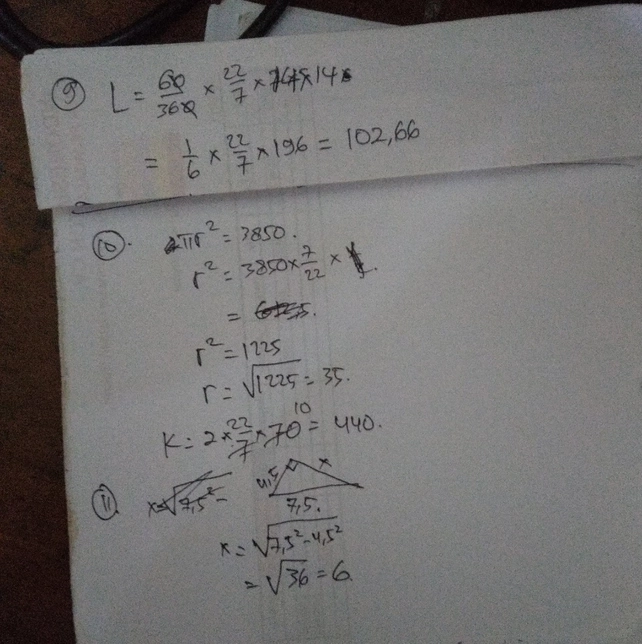 9 L = 60/360 × 22/7 × 14
= 1/6 × 22/7 × 196 = 102,66
10. πr² = 3850.
r² = 3850 × 7/22 ×
=
r² = 1225
r = √1225 = 35.
K = 2 × 22/7 × 70 10 = 440.
11 x = √7,5² -
4,5 x
7,5.
x = √7,5² - 4,5²
= √36 = 6.